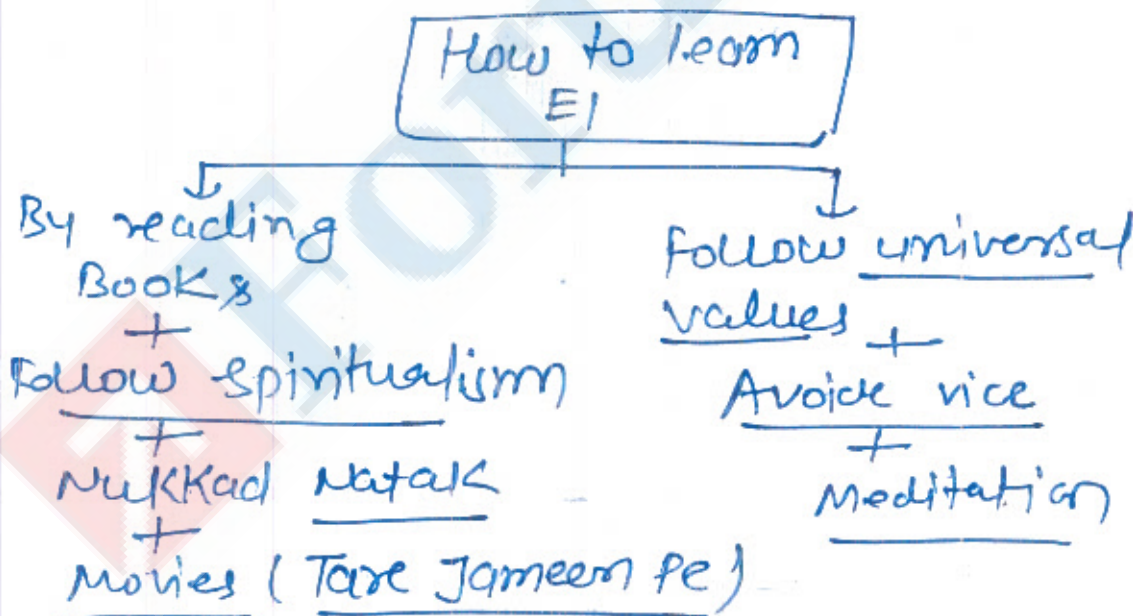 How to learn
EI
By reading
Books
+
Follow spiritualism
+
Nukkad Natak
+
Movies (Tare Jameen Pe)
Follow universal
values +
Avoide vice
+
Meditation